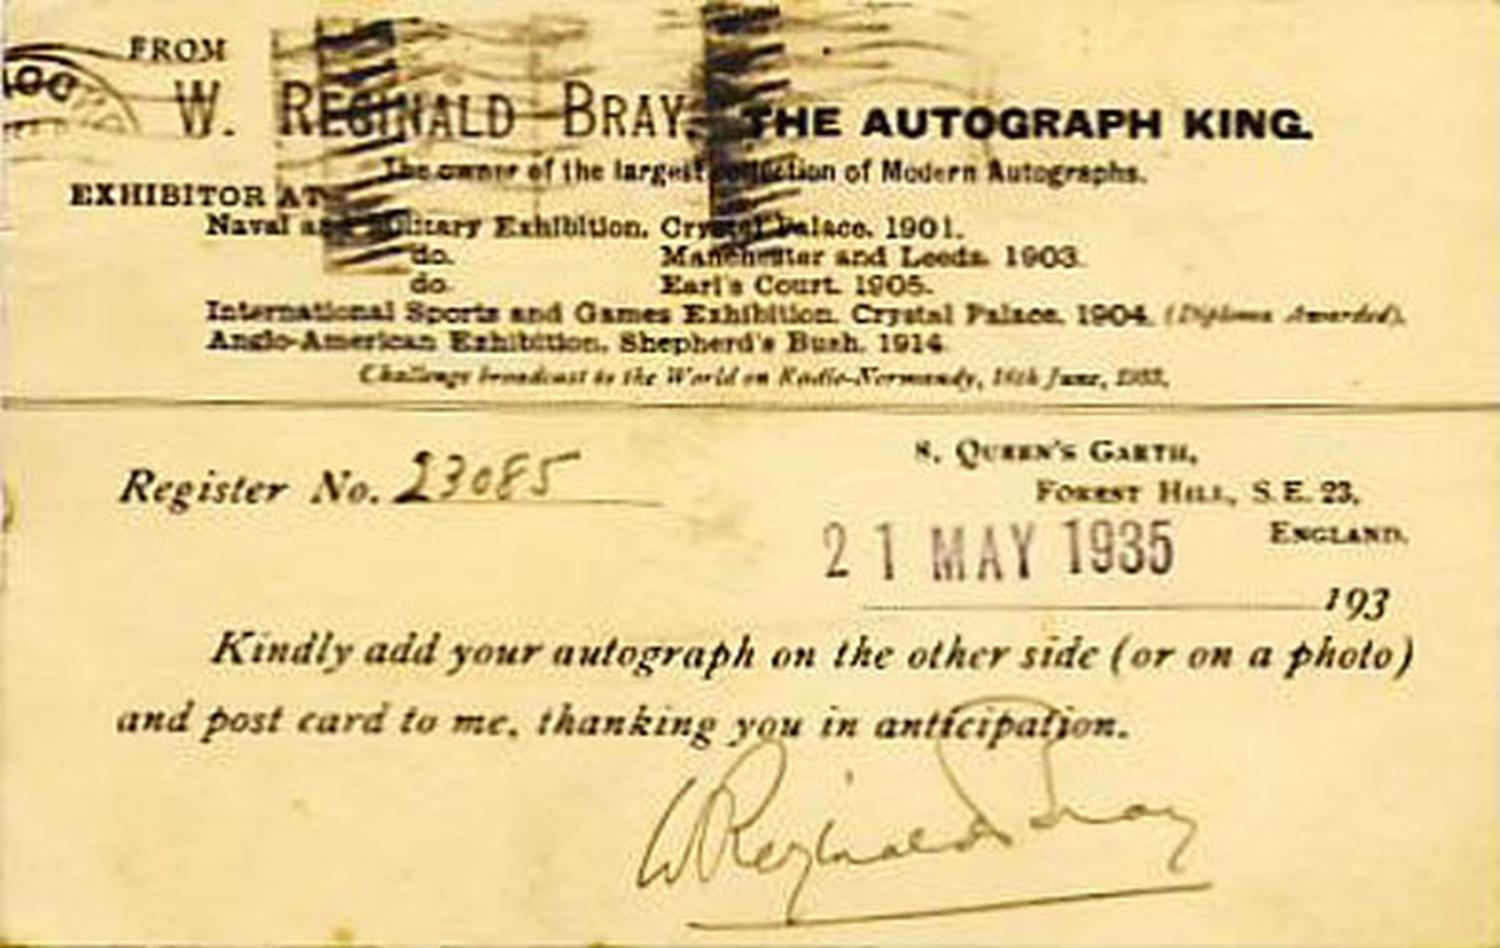 FROM
W. REGINALD BRAY, THE AUTOGRAPH KING.
The owner of the largest collection of Modern Autographs.
EXHIBITOR AT
Naval and Military Exhibition, Crystal Palace, 1901.
do. Manchester and Leeds. 1903.
do. Earl's Court. 1905.
International Sports and Games Exhibition. Crystal Palace. 1904. (Diploma Awarded).
Anglo-American Exhibition, Shepherd's Bush. 1914.
Challenge broadcast to the World on Radio-Normandy, 16th June,
8, QUEEN'S GARTH,
Register No. 23085
FOREST HILL, S.E. 23,
ENGLAND.
21 MAY 1935
193
Kindly add your autograph on the other side (or on a photo)
and post card to me, thanking you in anticipation.
W Reginald Bray